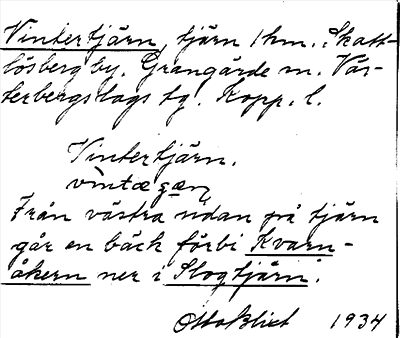 Vintertjärn, tjärn 1 km. : Skatt-
lösberg by. Grangärde sn. Väs-
terbergslags tg. Kopp. l.
Vintertjärn.
Från västra udan på tjärn
går en bäck förbi Kvarn-
åkern ner i Slogtjärn.
Otto Blixt 1934